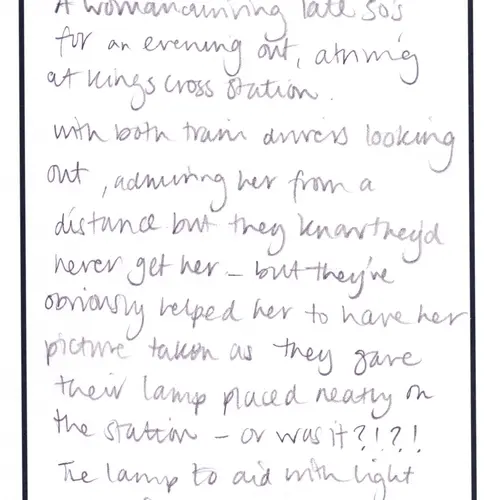 A woman arriving late 50's
for an evening out, arriving
at Kings Cross Station.
with both train drivers looking
out, admiring her from a
distance but they know they'd
never get her – but they've
obviously helped her to have her
picture taken as they gave
their lamp placed neatly on
the station – or was it?!?!
The lamp to aid with light